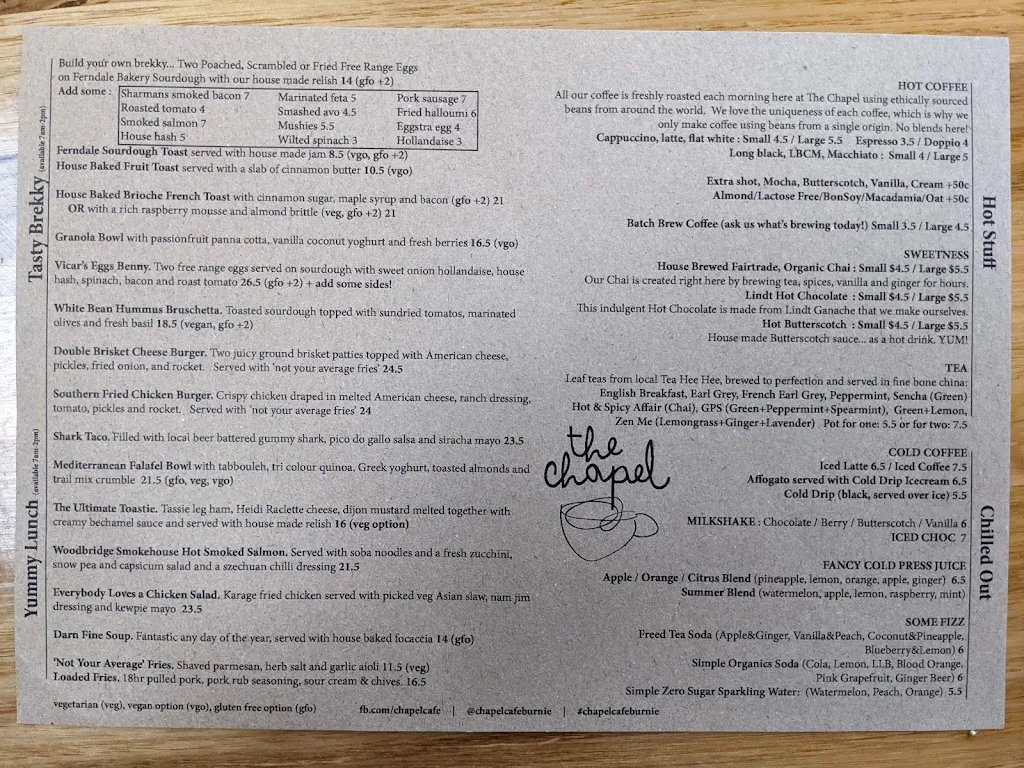 Tasty Brekky (available 7am-2pm)
Build your own brekky... Two Poached, Scrambled or Fried Free Range Eggs
on Ferndale Bakery Sourdough with our house made relish 14 (gfo +2)
Add some :
Sharmans smoked bacon 7
Roasted tomato 4
Smoked salmon 7
House hash 5
Marinated feta 5
Smashed avo 4.5
Mushies 5.5
Wilted spinach 3
Pork sausage 7
Fried halloumi 6
Eggstra egg 4
Hollandaise 3
Ferndale Sourdough Toast served with house made jam 8.5 (vgo, gfo +2)
House Baked Fruit Toast served with a slab of cinnamon butter 10.5 (vgo)
House Baked Brioche French Toast with cinnamon sugar, maple syrup and bacon (gfo +2) 21
OR with a rich raspberry mousse and almond brittle (veg, gfo +2) 21
Granola Bowl with passionfruit panna cotta, vanilla coconut yoghurt and fresh berries 16.5 (vgo)
Vicar's Eggs Benny. Two free range eggs served on sourdough with sweet onion hollandaise, house
hash, spinach, bacon and roast tomato 26.5 (gfo +2) + add some sides!
White Bean Hummus Bruschetta. Toasted sourdough topped with sundried tomatos, marinated
olives and fresh basil 18.5 (vegan, gfo +2)
Yummy Lunch (available 7am-2pm)
Double Brisket Cheese Burger. Two juicy ground brisket patties topped with American cheese,
pickles, fried onion, and rocket. Served with 'not your average fries' 24.5
Southern Fried Chicken Burger. Crispy chicken draped in melted American cheese, ranch dressing,
tomato, pickles and rocket. Served with 'not your average fries' 24
Shark Taco. Filled with local beer battered gummy shark, pico do gallo salsa and siracha mayo 23.5
Mediterranean Falafel Bowl with tabbouleh, tri colour quinoa, Greek yoghurt, toasted almonds and
trail mix crumble 21.5 (gfo, veg, vgo)
The Ultimate Toastie. Tassie leg ham, Heidi Raclette cheese, dijon mustard melted together with
creamy bechamel sauce and served with house made relish 16 (veg option)
Woodbridge Smokehouse Hot Smoked Salmon. Served with soba noodles and a fresh zucchini,
snow pea and capsicum salad and a szechuan chilli dressing 21.5
Everybody Loves a Chicken Salad. Karage fried chicken served with picked veg Asian slaw, nam jim
dressing and kewpie mayo 23.5
Darn Fine Soup. Fantastic any day of the year, served with house baked focaccia 14 (gfo)
'Not Your Average' Fries. Shaved parmesan, herb salt and garlic aioli 11.5 (veg)
Loaded Fries. 18hr pulled pork, pork rub seasoning, sour cream & chives. 16.5
vegetarian (veg), vegan option (vgo), gluten free option (gfo)
fb.com/chapelcafe | @chapelcafeburnie | #chapelcafeburnie
the
chapel
Hot Stuff
HOT COFFEE
All our coffee is freshly roasted each morning here at The Chapel using ethically sourced
beans from around the world. We love the uniqueness of each coffee, which is why we
only make coffee using beans from a single origin. No blends here!
Cappuccino, latte, flat white : Small 4.5 / Large 5.5 Espresso 3.5 / Doppio 4
Long black, LBCM, Macchiato : Small 4 / Large 5
Extra shot, Mocha, Butterscotch, Vanilla, Cream +50c
Almond/Lactose Free/BonSoy/Macadamia/Oat +50c
Batch Brew Coffee (ask us what's brewing today!) Small 3.5 / Large 4.5
SWEETNESS
House Brewed Fairtrade, Organic Chai : Small $4.5 / Large $5.5
Our Chai is created right here by brewing tea, spices, vanilla and ginger for hours.
Lindt Hot Chocolate : Small $4.5 / Large $5.5
This indulgent Hot Chocolate is made from Lindt Ganache that we make ourselves.
Hot Butterscotch : Small $4.5 / Large $5.5
House made Butterscotch sauce... as a hot drink. YUM!
TEA
Leaf teas from local Tea Hee Hee, brewed to perfection and served in fine bone china:
English Breakfast, Earl Grey, French Earl Grey, Peppermint, Sencha (Green)
Hot & Spicy Affair (Chai), GPS (Green+Peppermint+Spearmint), Green+Lemon,
Zen Me (Lemongrass+Ginger+Lavender) Pot for one: 5.5 or for two: 7.5
Chilled Out
COLD COFFEE
Iced Latte 6.5 / Iced Coffee 7.5
Affogato served with Cold Drip Icecream 6.5
Cold Drip (black, served over ice) 5.5
MILKSHAKE : Chocolate / Berry / Butterscotch / Vanilla 6
ICED CHOC 7
FANCY COLD PRESS JUICE
Apple / Orange / Citrus Blend (pineapple, lemon, orange, apple, ginger) 6.5
Summer Blend (watermelon, apple, lemon, raspberry, mint)
SOME FIZZ
Freed Tea Soda (Apple&Ginger, Vanilla&Peach, Coconut&Pineapple,
Blueberry&Lemon) 6
Simple Organics Soda (Cola, Lemon, LLB, Blood Orange,
Pink Grapefruit, Ginger Beer) 6
Simple Zero Sugar Sparkling Water: (Watermelon, Peach, Orange) 5.5